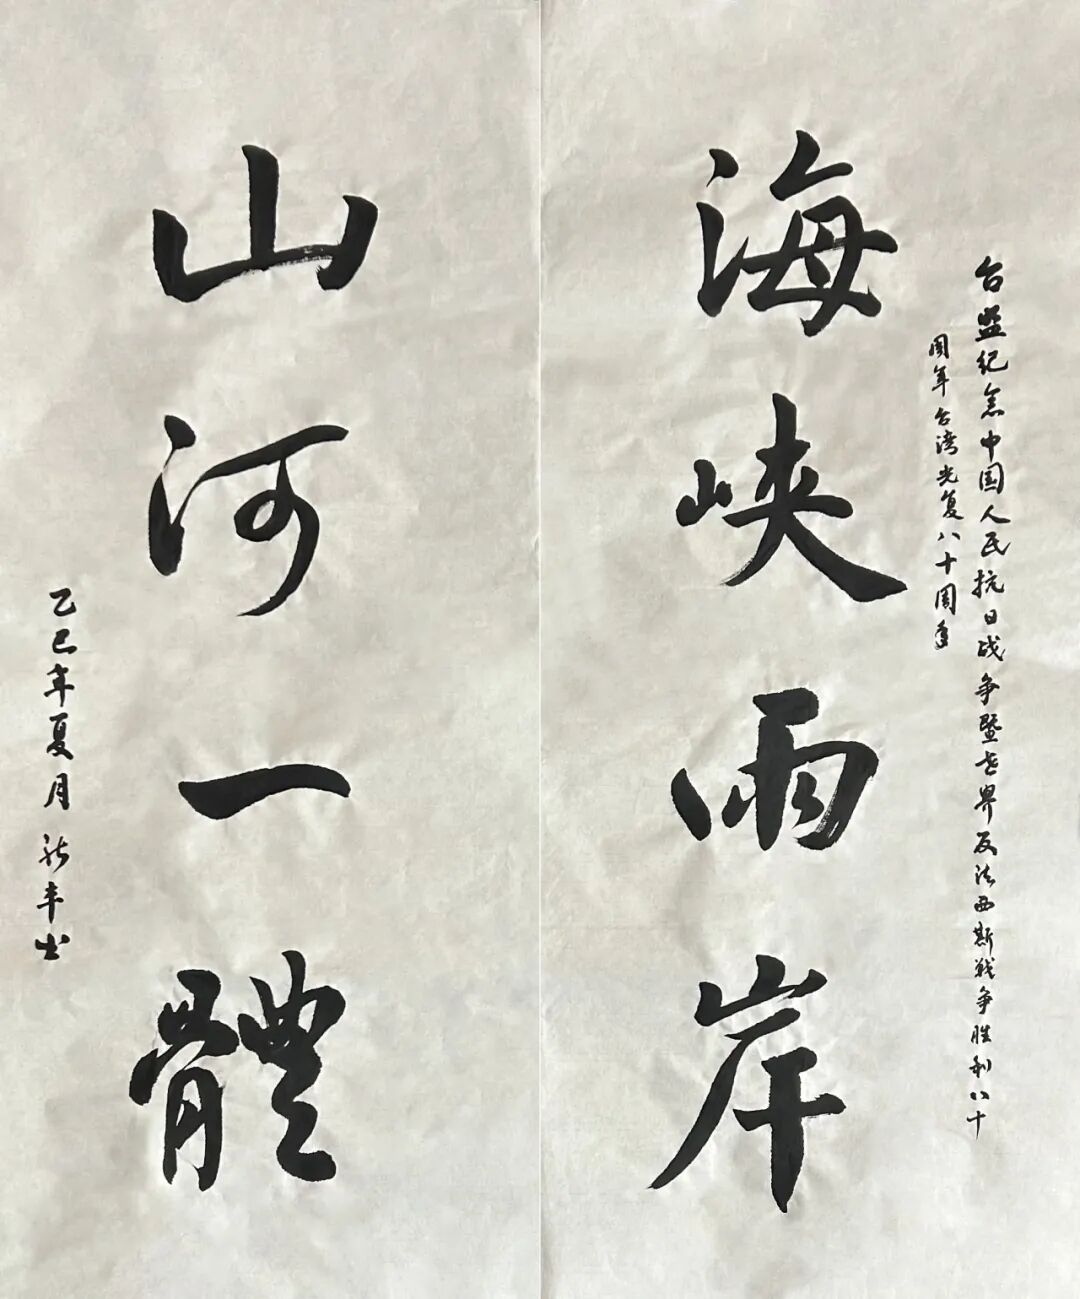 台盟纪念中国人民抗日战争暨世界反法西斯战争胜利八十
周年台湾光复八十周年
海峡兩岸
山河一體
乙巳年夏月 丰书